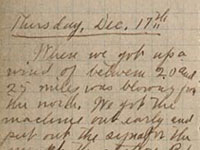 Thursday, Dec. 17th
When we got up a
wind of between 20 and
25 miles was blowing from
the north. We got the
machine out early and
put out the signal for the